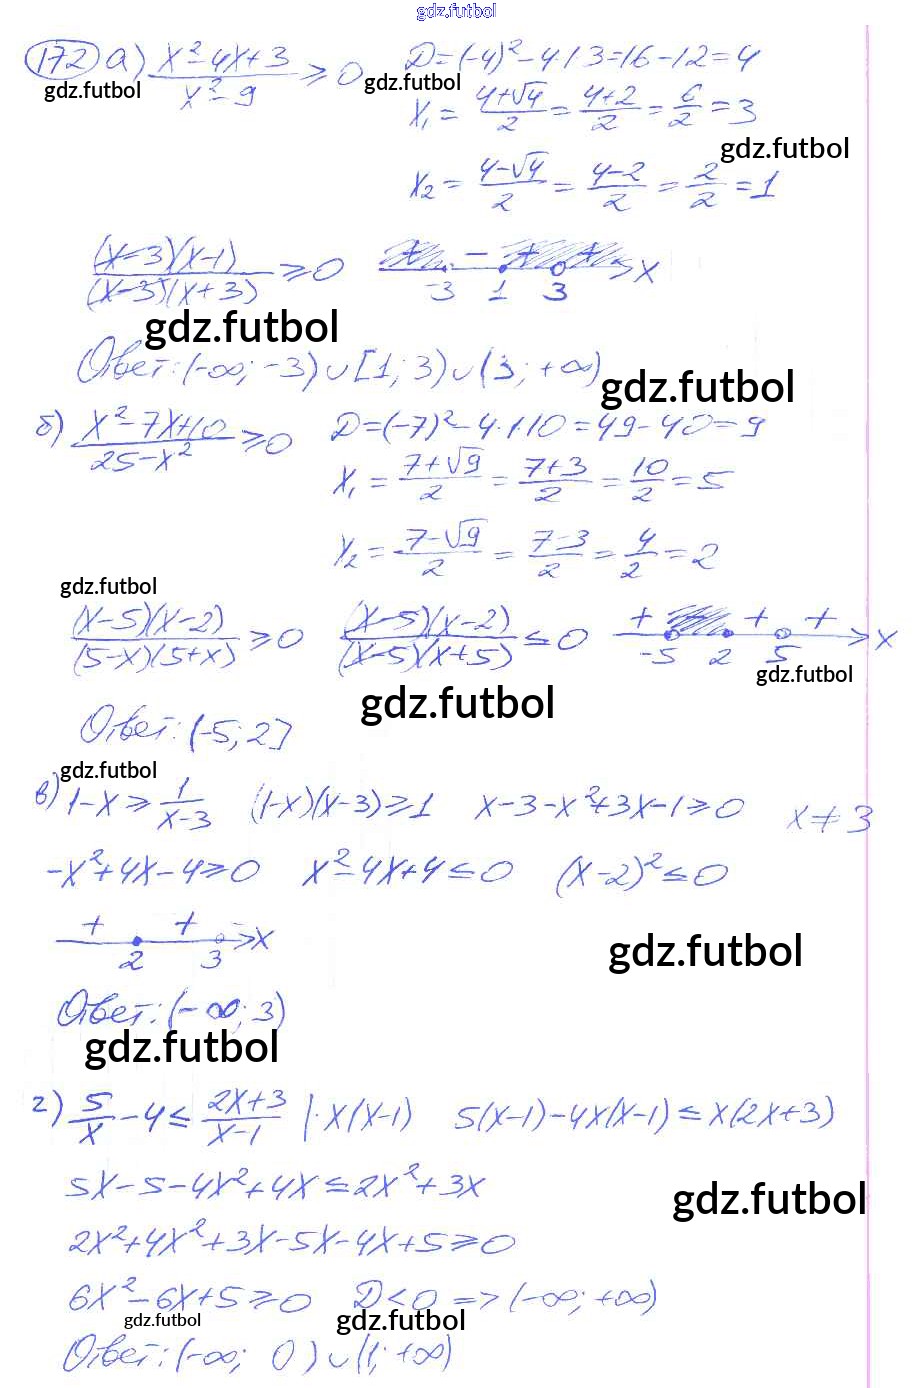 gdz.futbol
172 а) (x²-4x+3)/(x²-9) ≥ 0 D=(-4)²-4·1·3=16-12=4
gdz.futbol gdz.futbol
x₁ = (4+√4)/2 = (4+2)/2 = 6/2 = 3
gdz.futbol
x₂ = (4-√4)/2 = (4-2)/2 = 2/2 = 1
((x-3)(x-1))/((x-3)(x+3)) ≥ 0 + - + + x
-3 1 3
gdz.futbol
Ответ: (-∞; -3)∪[1; 3)∪(3; +∞)
gdz.futbol
б) (x²-7x+10)/(25-x²) ≥ 0 D=(-7)²-4·1·10=49-40=9
x₁ = (7+√9)/2 = (7+3)/2 = 10/2 = 5
x₂ = (7-√9)/2 = (7-3)/2 = 4/2 = 2
gdz.futbol
((x-5)(x-2))/((5-x)(5+x)) ≥ 0 ((x-5)(x-2))/((x-5)(x+5)) ≤ 0 + + + x
-5 2 5
gdz.futbol
gdz.futbol
Ответ: (-5; 2]
gdz.futbol
в) 1-x ≥ 1/(x-3) (1-x)(x-3) ≥ 1 x-3-x²+3x-1 ≥ 0 x ≠ 3
-x²+4x-4 ≥ 0 x²-4x+4 ≤ 0 (x-2)² ≤ 0
+ + - x
2 3
gdz.futbol
Ответ: (-∞; 3)
gdz.futbol
г) 5/x - 4 ≤ (2x+3)/(x-1) |·x(x-1) 5(x-1)-4x(x-1) ≤ x(2x+3)
5x-5-4x²+4x ≤ 2x²+3x
gdz.futbol
2x²+4x²+3x-5x-4x+5 ≥ 0
6x²-6x+5 ≥ 0 D<0 => (-∞; +∞)
gdz.futbol gdz.futbol
Ответ: (-∞; 0)∪(1; +∞)